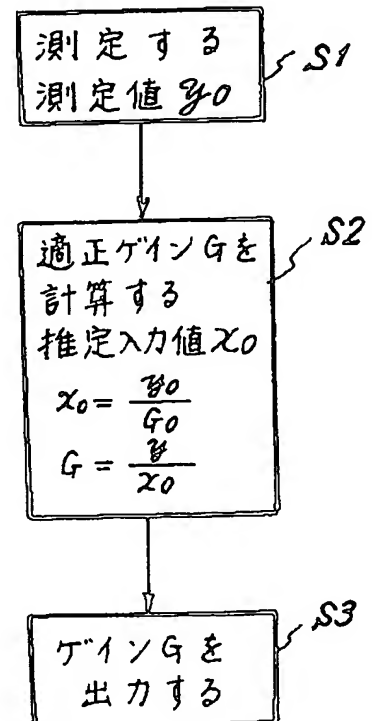 測定する
測定値 y0
S1
適正ゲインGを
計算する
推定入力値x0
x0 = y0/G0
G = y/x0
S2
ゲインGを
出力する
S3